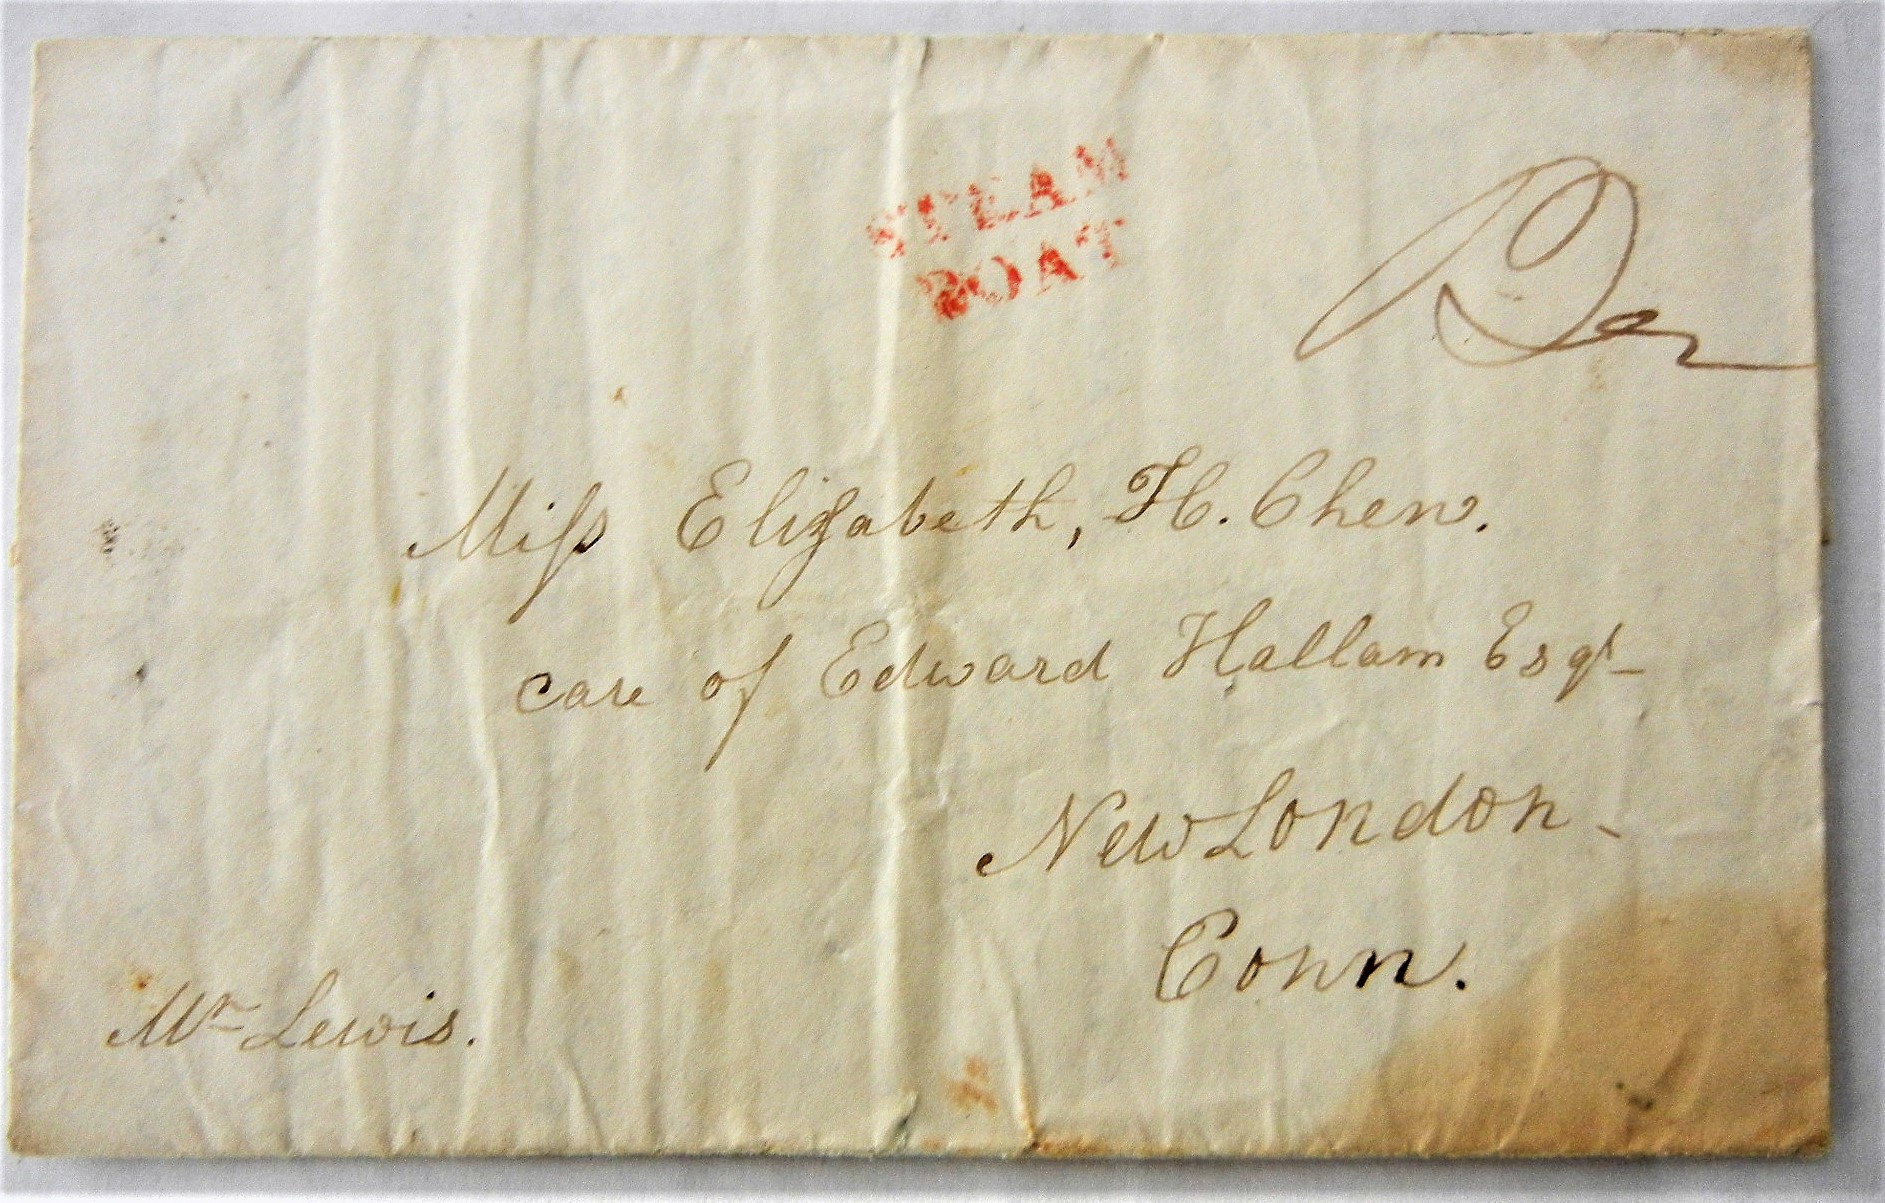 STEAM
BOAT
Miſs Elizabeth, H. Chew.
care of Edward Hallam Esqr
New London
Conn.
Mr Lewis.